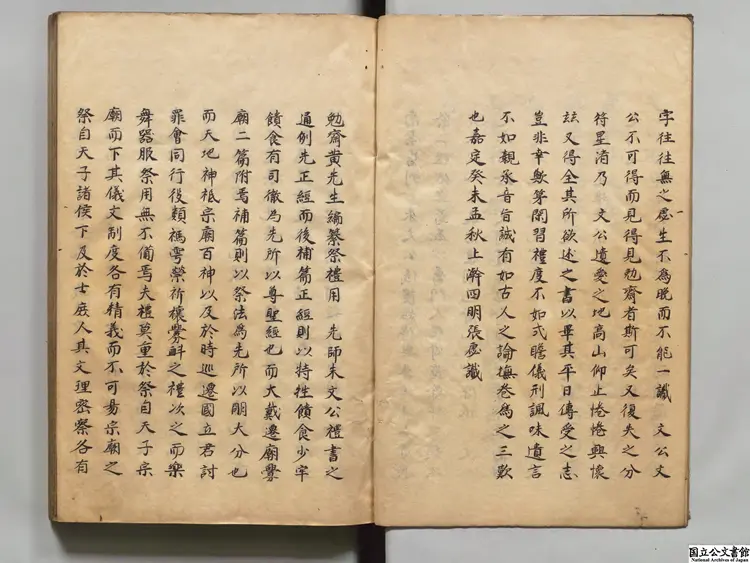 字往往無之虙生不為晚而不能一識　文公文
公不可得而見得見勉齋者斯可矣又復失之分
符星渚乃　文公遺愛之地高山仰止惓惓興懷
玆又得全其所欲述之書以畢其平日傳受之志
豈非幸歟第閑習禮度不如式瞻儀刑諷味遺言
不如親承音旨誠有如古人之論撫卷為之三歎
也嘉定癸未孟秋上澣四明張虙識
勉齋黃先生編纂祭禮用　先師朱文公禮書之
通例先正經而後補篇正經則以特牲饋食少牢
饋食有司徹為先所以尊聖經也而大戴遷廟釁
廟二篇附焉補篇則以祭法為先所以明大分也
而天地神祗宗廟百神以及於時巡遷國立君討
罪會同行役類禡雩禜祈禳釁衈之禮次之而樂
舞器服祭用無不備焉夫禮莫重於祭自天子宗
廟而下其儀文制度各有精義而不可易宗廟之
祭自天子諸侯下及於士庶人其文理密察各有
国立公文書館
National Archives of Japan